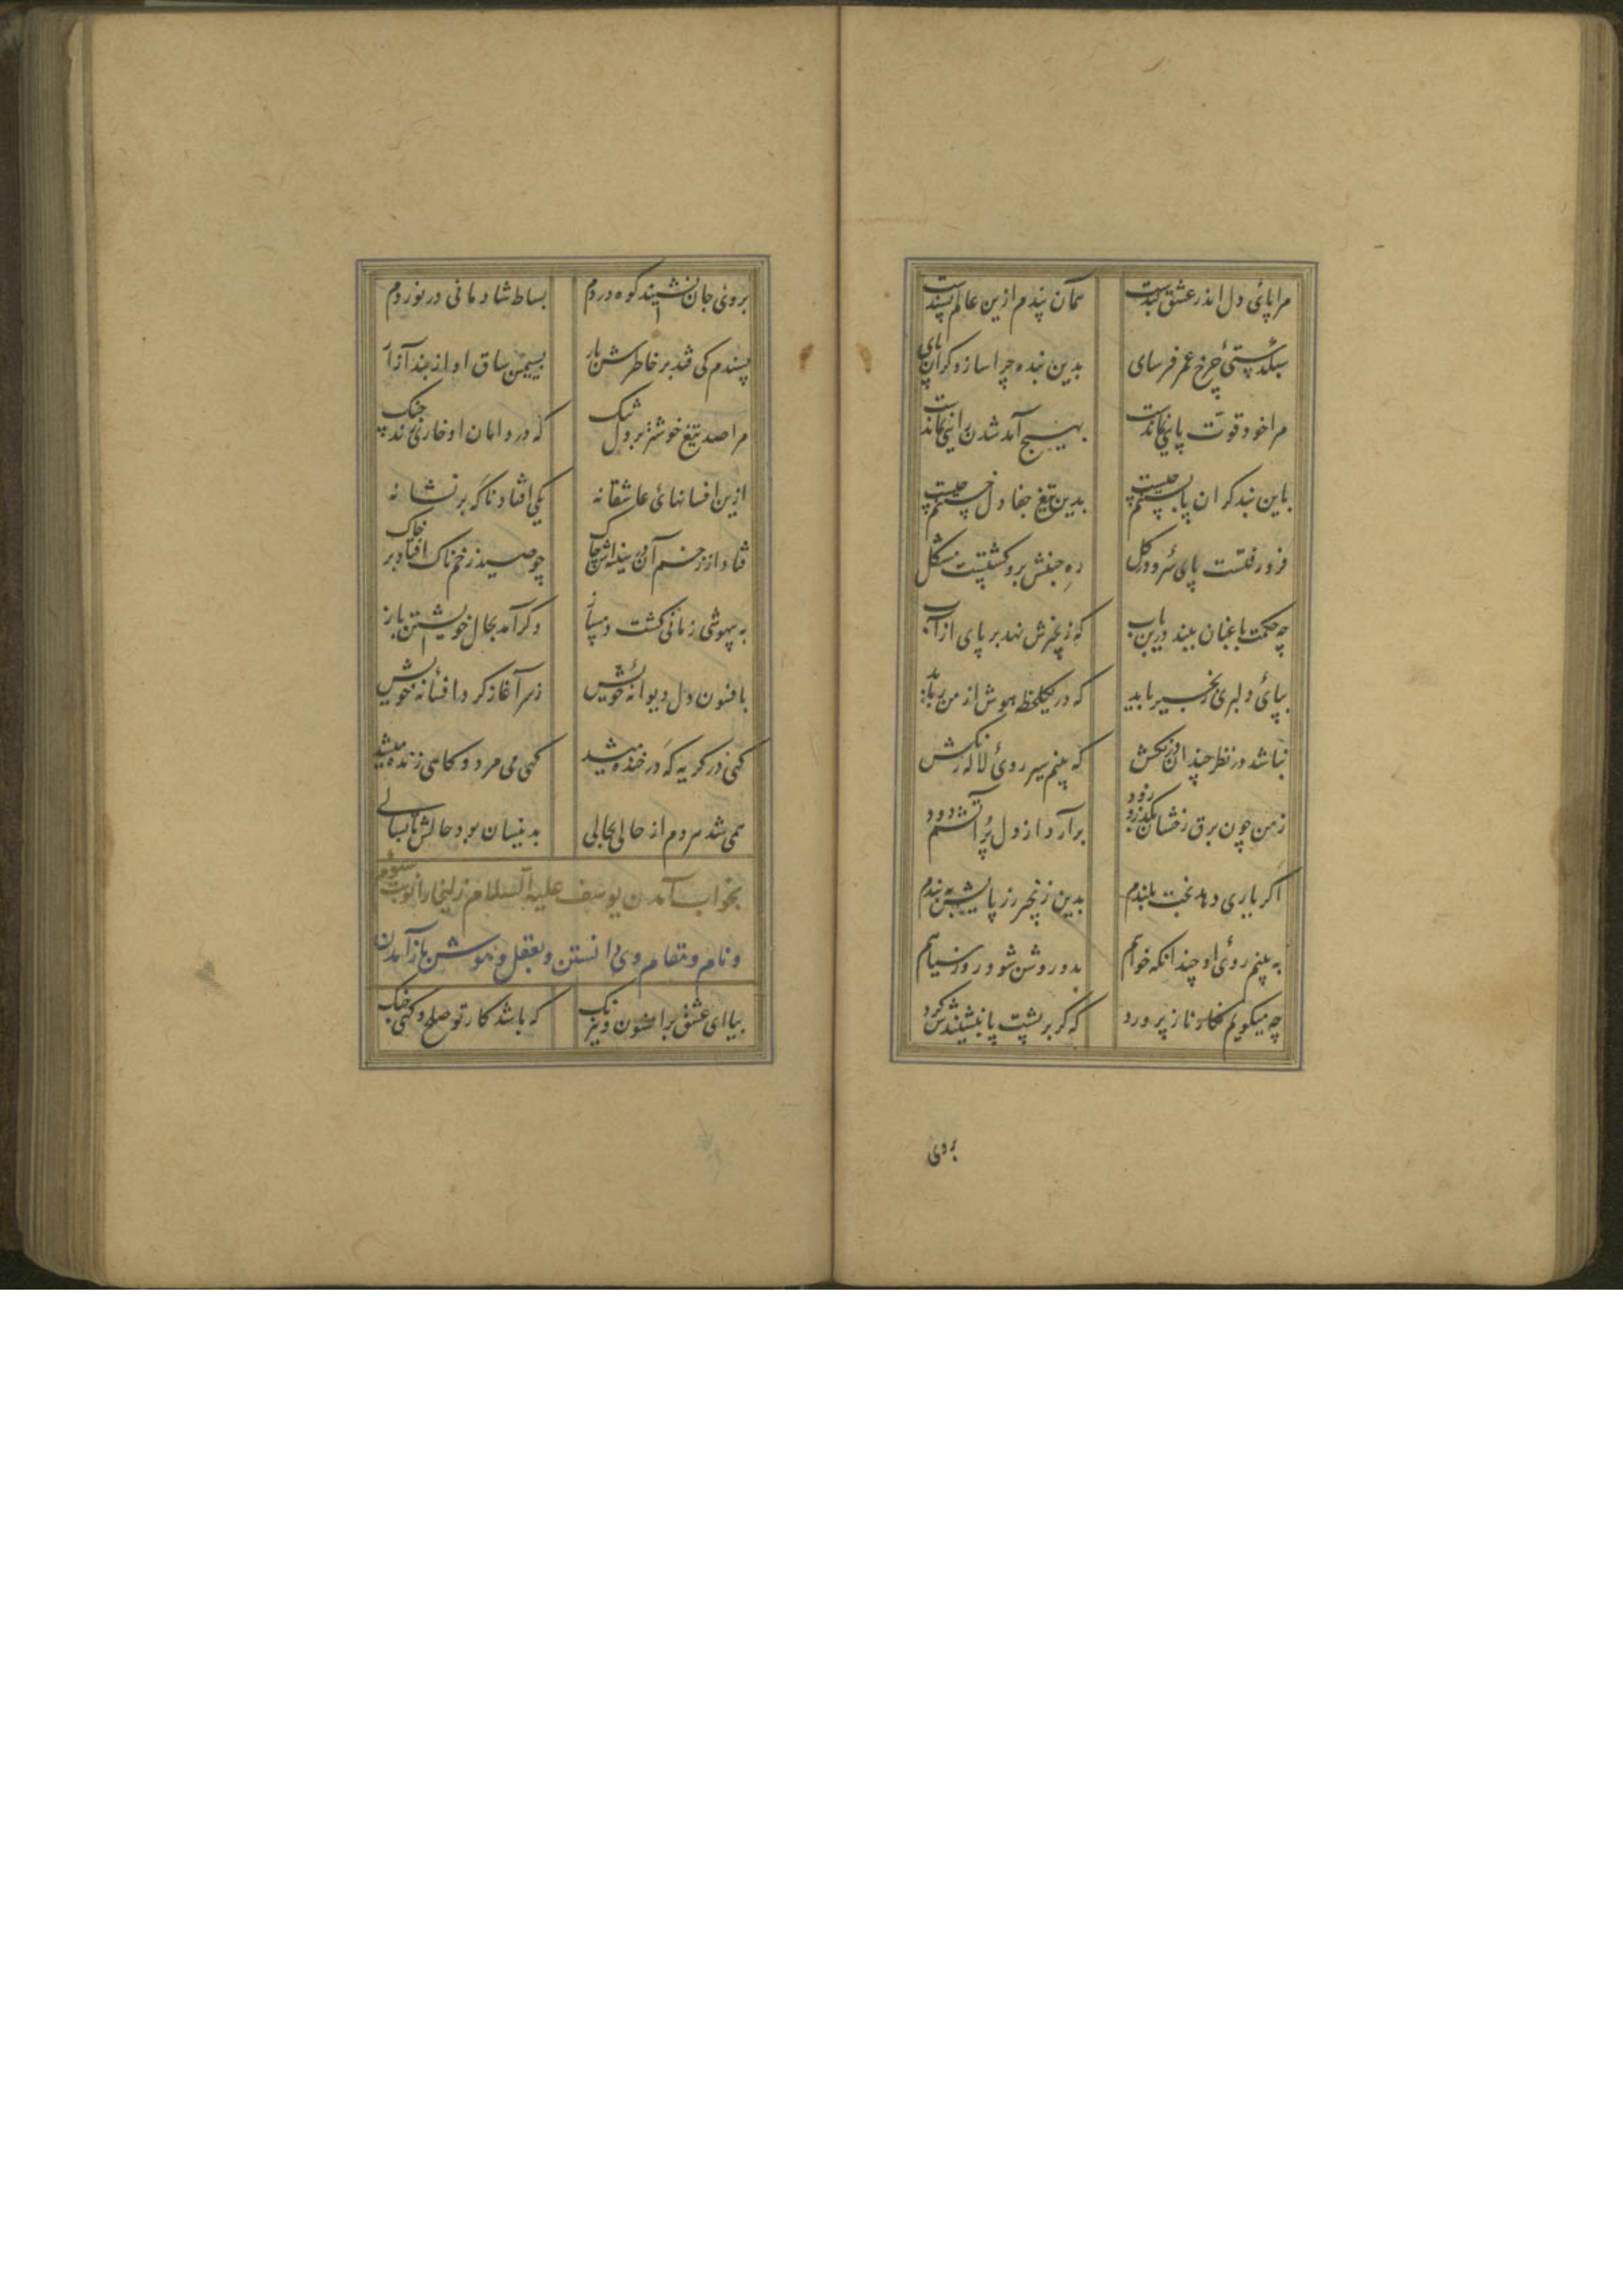 مرا پائ دل اندر عشق بندست همان بندم ازین عالم پسندست
سبکدستئ چرخ عمر فرسای بدین بنده چرا سازد کران پای
مرا خود قوت پائی نماندست بهیچ آمد شدن رائی نماندست
باین بند کران پا بستنم چیست بدین تیغ جفا دل خستنم چیست
فرو رفتست پای سرو در کل ره جنبش برو کشتست مشکل
چه حکمت باغبان بیند درین باب که زنجیرش نهد بر پای از آب
بپائ دلبری زنجیر باید که در یکلحظه هوش از من رباید
نباشد در نظر چندان درنکش که بینم سیر روئ لاله رنکش
ز من چون برق رخشان بکذرد زود برآرد از دل پر آتشم دود
اکر یاری دهد بخت بلندم بدین زنجیر زر پایش ببندم
به بینم روئ او چندانکه خواهم بدو روشن شود روز سیاهم
چه میکویم نکار ناز پرورد که کر بر پشت پا بنشیندش کرد
بروی
بروئ جان نشیند کوه دردم بساط شادمانی درنوردم
پسندم کی فتد بر خاطرش بار بسیمین ساق او از بند آزار
مرا صد تیغ خوشتر بر دل تنک که در دامان او خاری زند چنک
ازین افسانهائ عاشقانه یکی افتاد ناکه بر نشانه
فتاد از زخم آن در سینه اش چاک چو صید زخمناک افتاد بر خاک
به بیهوشی زمانی کشت دمساز دکر آمد بحال خویشتن باز
بافسون دل دیوانه خویش ز سر آغاز کرد افسانه خویش
کهی در کریه که در خنده میشد کهی می مرد و کاهی زنده میشد
همی شد هر دم از حالی بحالی بدینسان بود حالش تا بسالی
بخواب آمدن یوسف علیه السلام زلیخا را نوبت سوم
و نام و مقام وی دانستن و بعقل و هوش باز آمدن
بیا ای عشق پر افسون و نیرنک که باشد کار تو صلح و کهی جنک